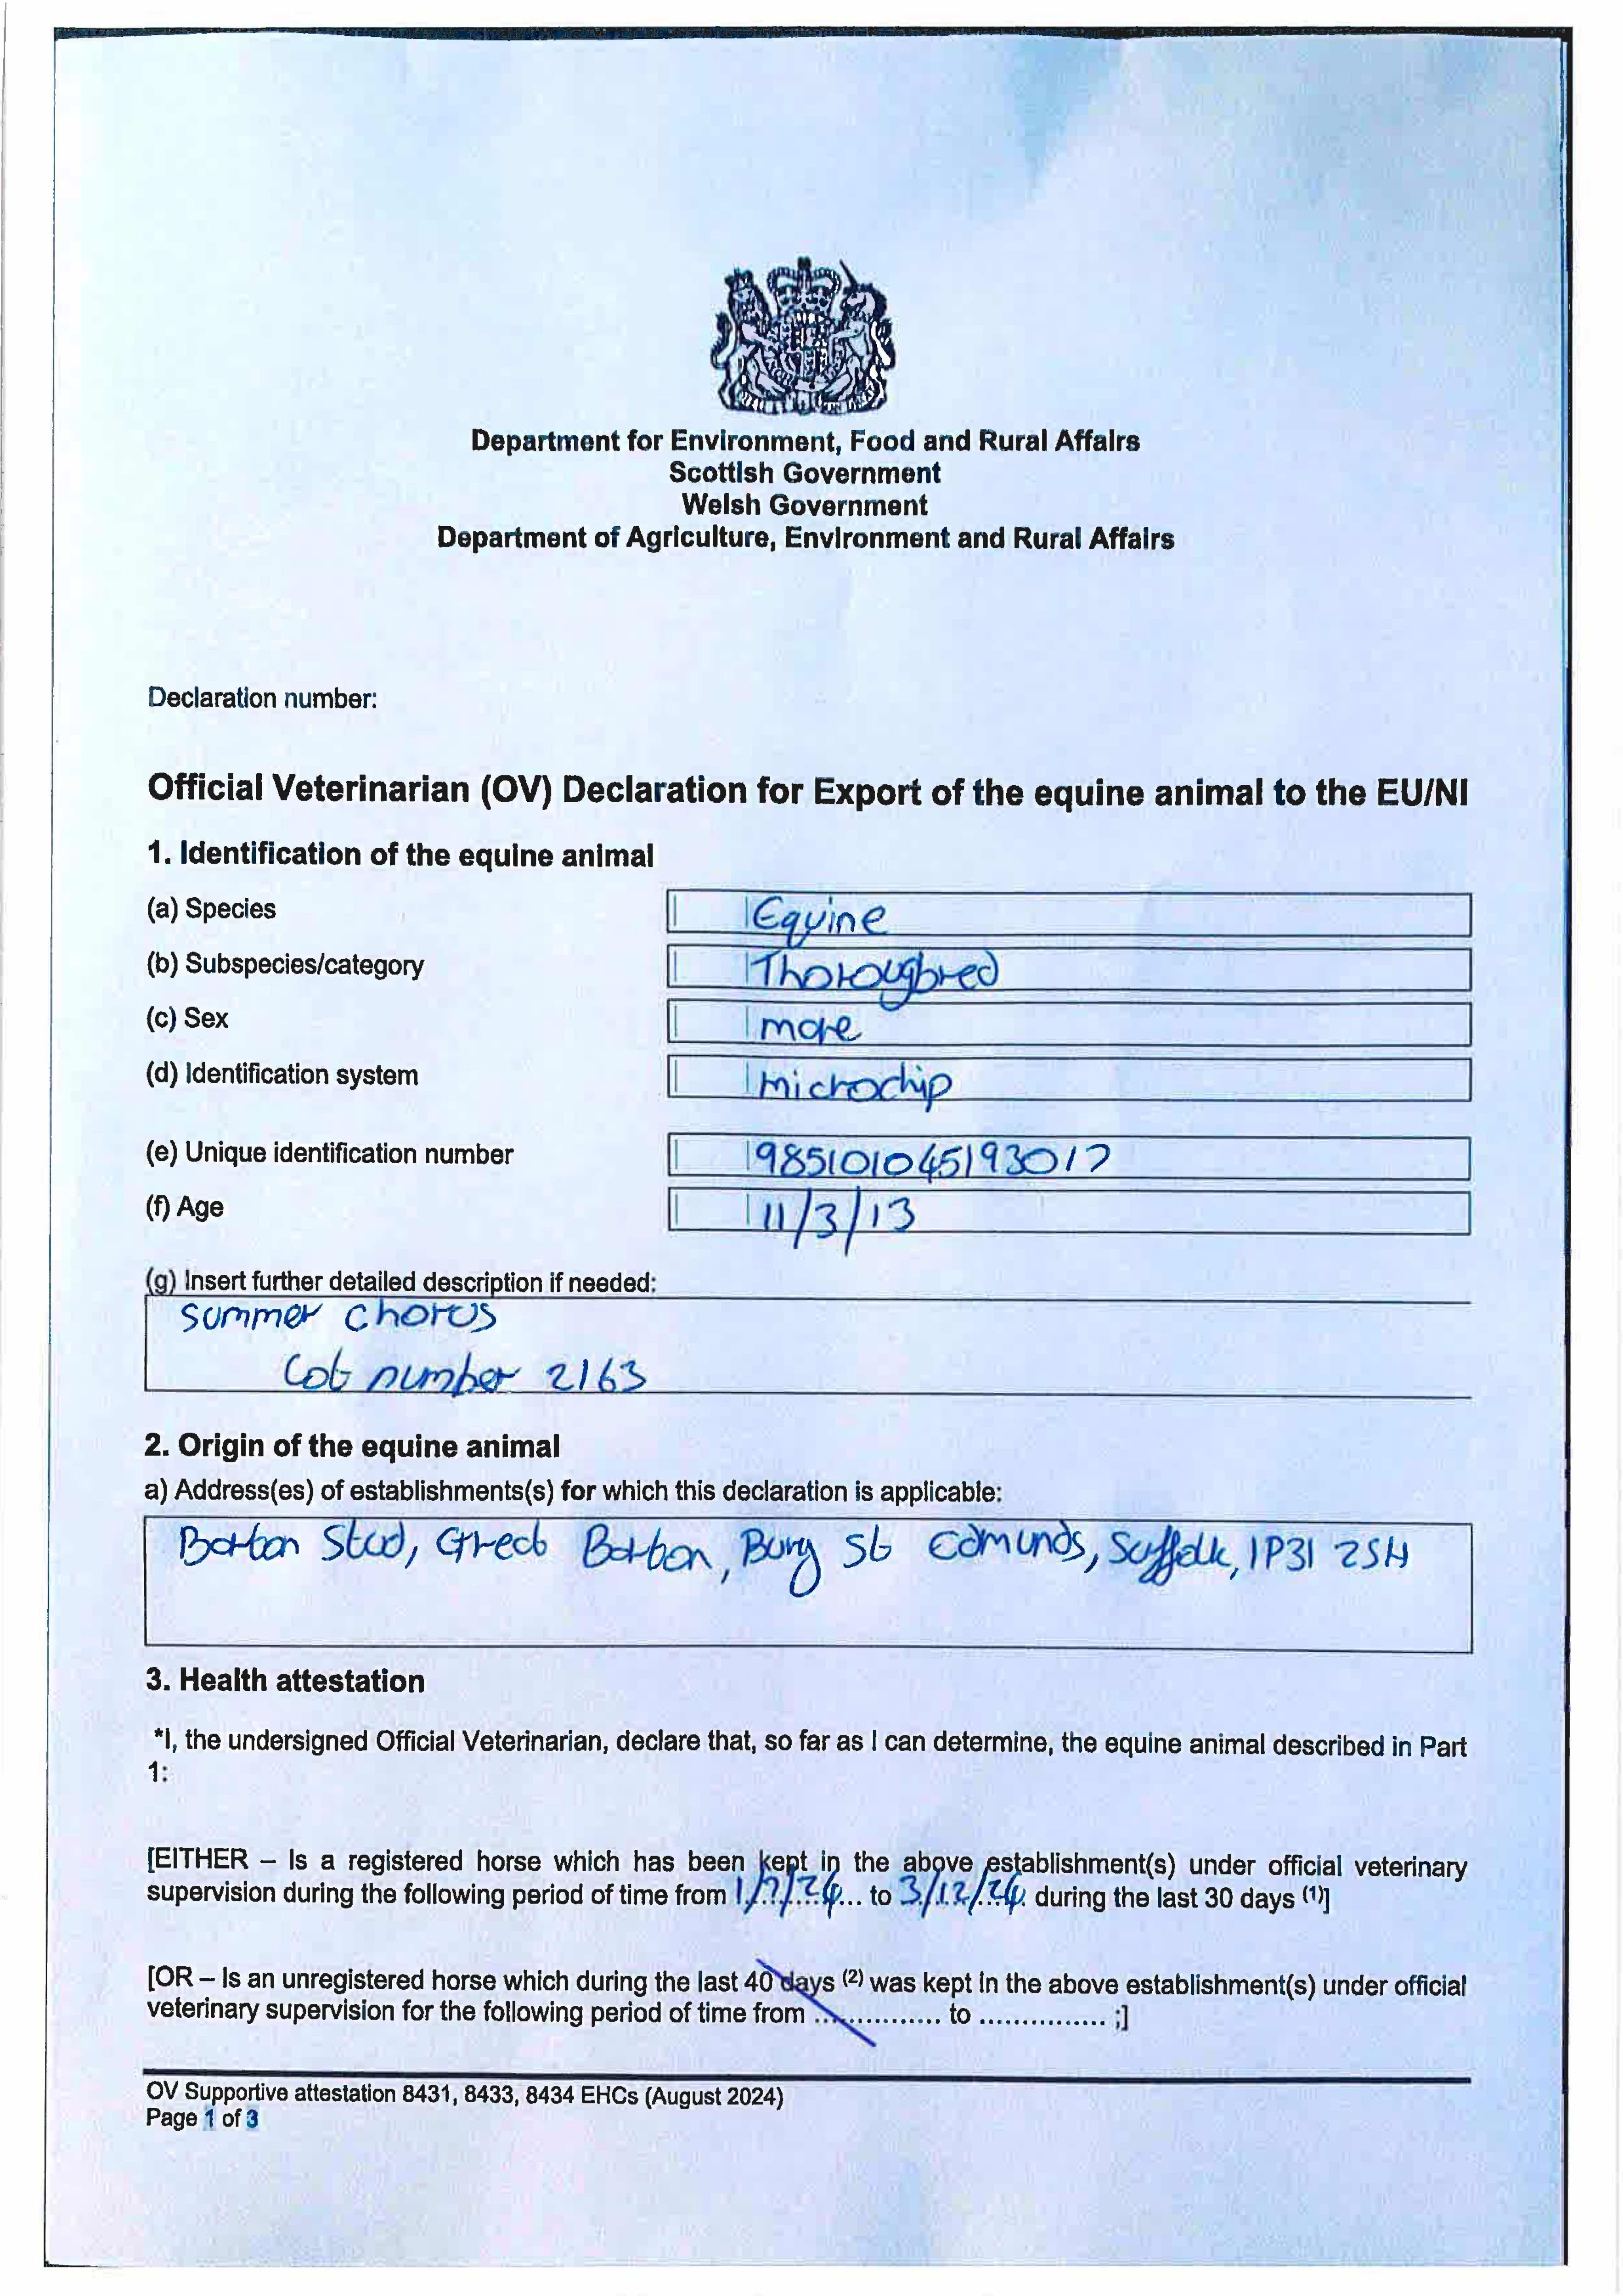 Department for Environment, Food and Rural Affairs
Scottish Government
Welsh Government
Department of Agriculture, Environment and Rural Affairs
Declaration number:
Official Veterinarian (OV) Declaration for Export of the equine animal to the EU/NI
1. Identification of the equine animal
(a) Species Equine
(b) Subspecies/category Thoroughbred
(c) Sex mare
(d) Identification system microchip
(e) Unique identification number 985101045193017
(f) Age 11/3/13
(g) Insert further detailed description if needed:
summer chorus
Lot number 2163
2. Origin of the equine animal
a) Address(es) of establishments(s) for which this declaration is applicable:
Barton Stud, Great Barton, Bury St Edmunds, Suffolk, IP31 2SH
3. Health attestation
*I, the undersigned Official Veterinarian, declare that, so far as I can determine, the equine animal described in Part
1:
[EITHER – Is a registered horse which has been kept in the above establishment(s) under official veterinary
supervision during the following period of time from 1/7/24... to 3/12/24. during the last 30 days (1)]
[OR – Is an unregistered horse which during the last 40 days (2) was kept in the above establishment(s) under official
veterinary supervision for the following period of time from ............... to ............... ;]
OV Supportive attestation 8431, 8433, 8434 EHCs (August 2024)
Page 1 of 3